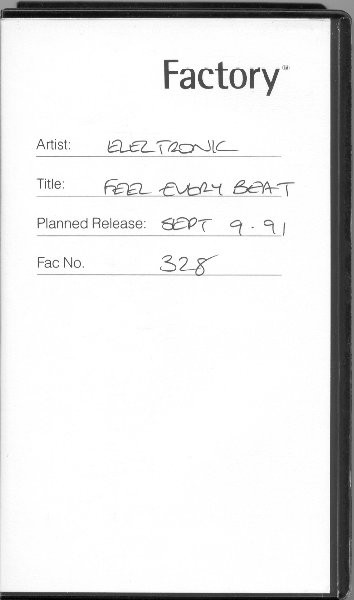 Factory™
Artist: ELECTRONIC
Title: FEEL EVERY BEAT
Planned Release: SEPT 9.91
Fac No. 328